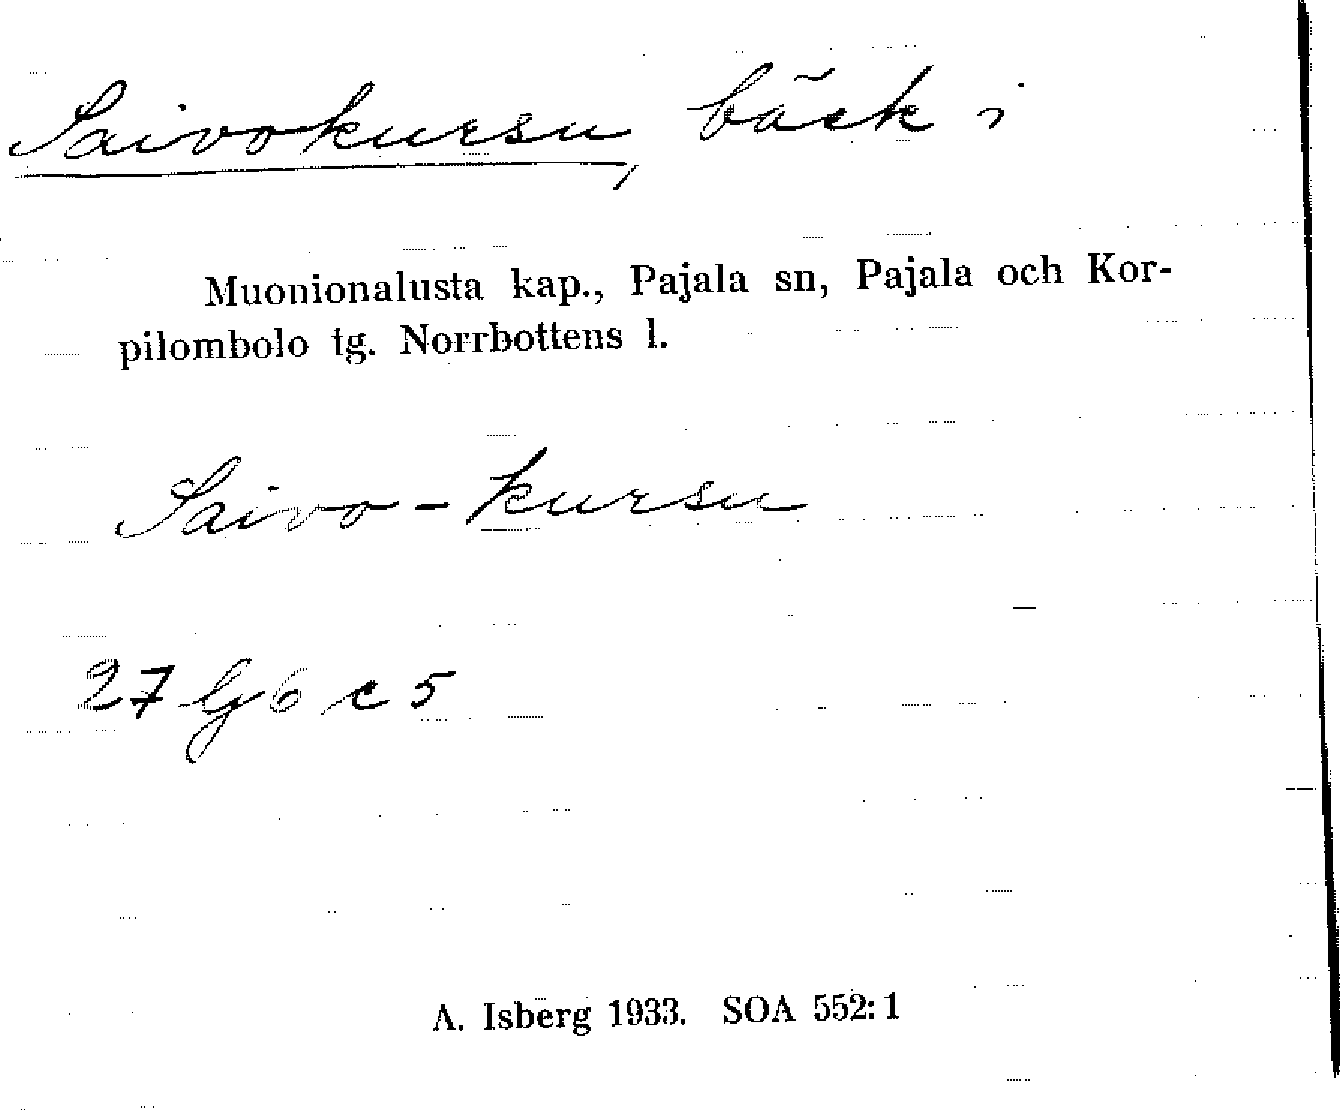 Saivokursu, bäck i
Muonionalusta kap., Pajala sn, Pajala och Kor-
pilombolo tg. Norrbottens l.
Saivo-kursu
27 G 6 c 5
A. Isberg 1933. SOA 552:1